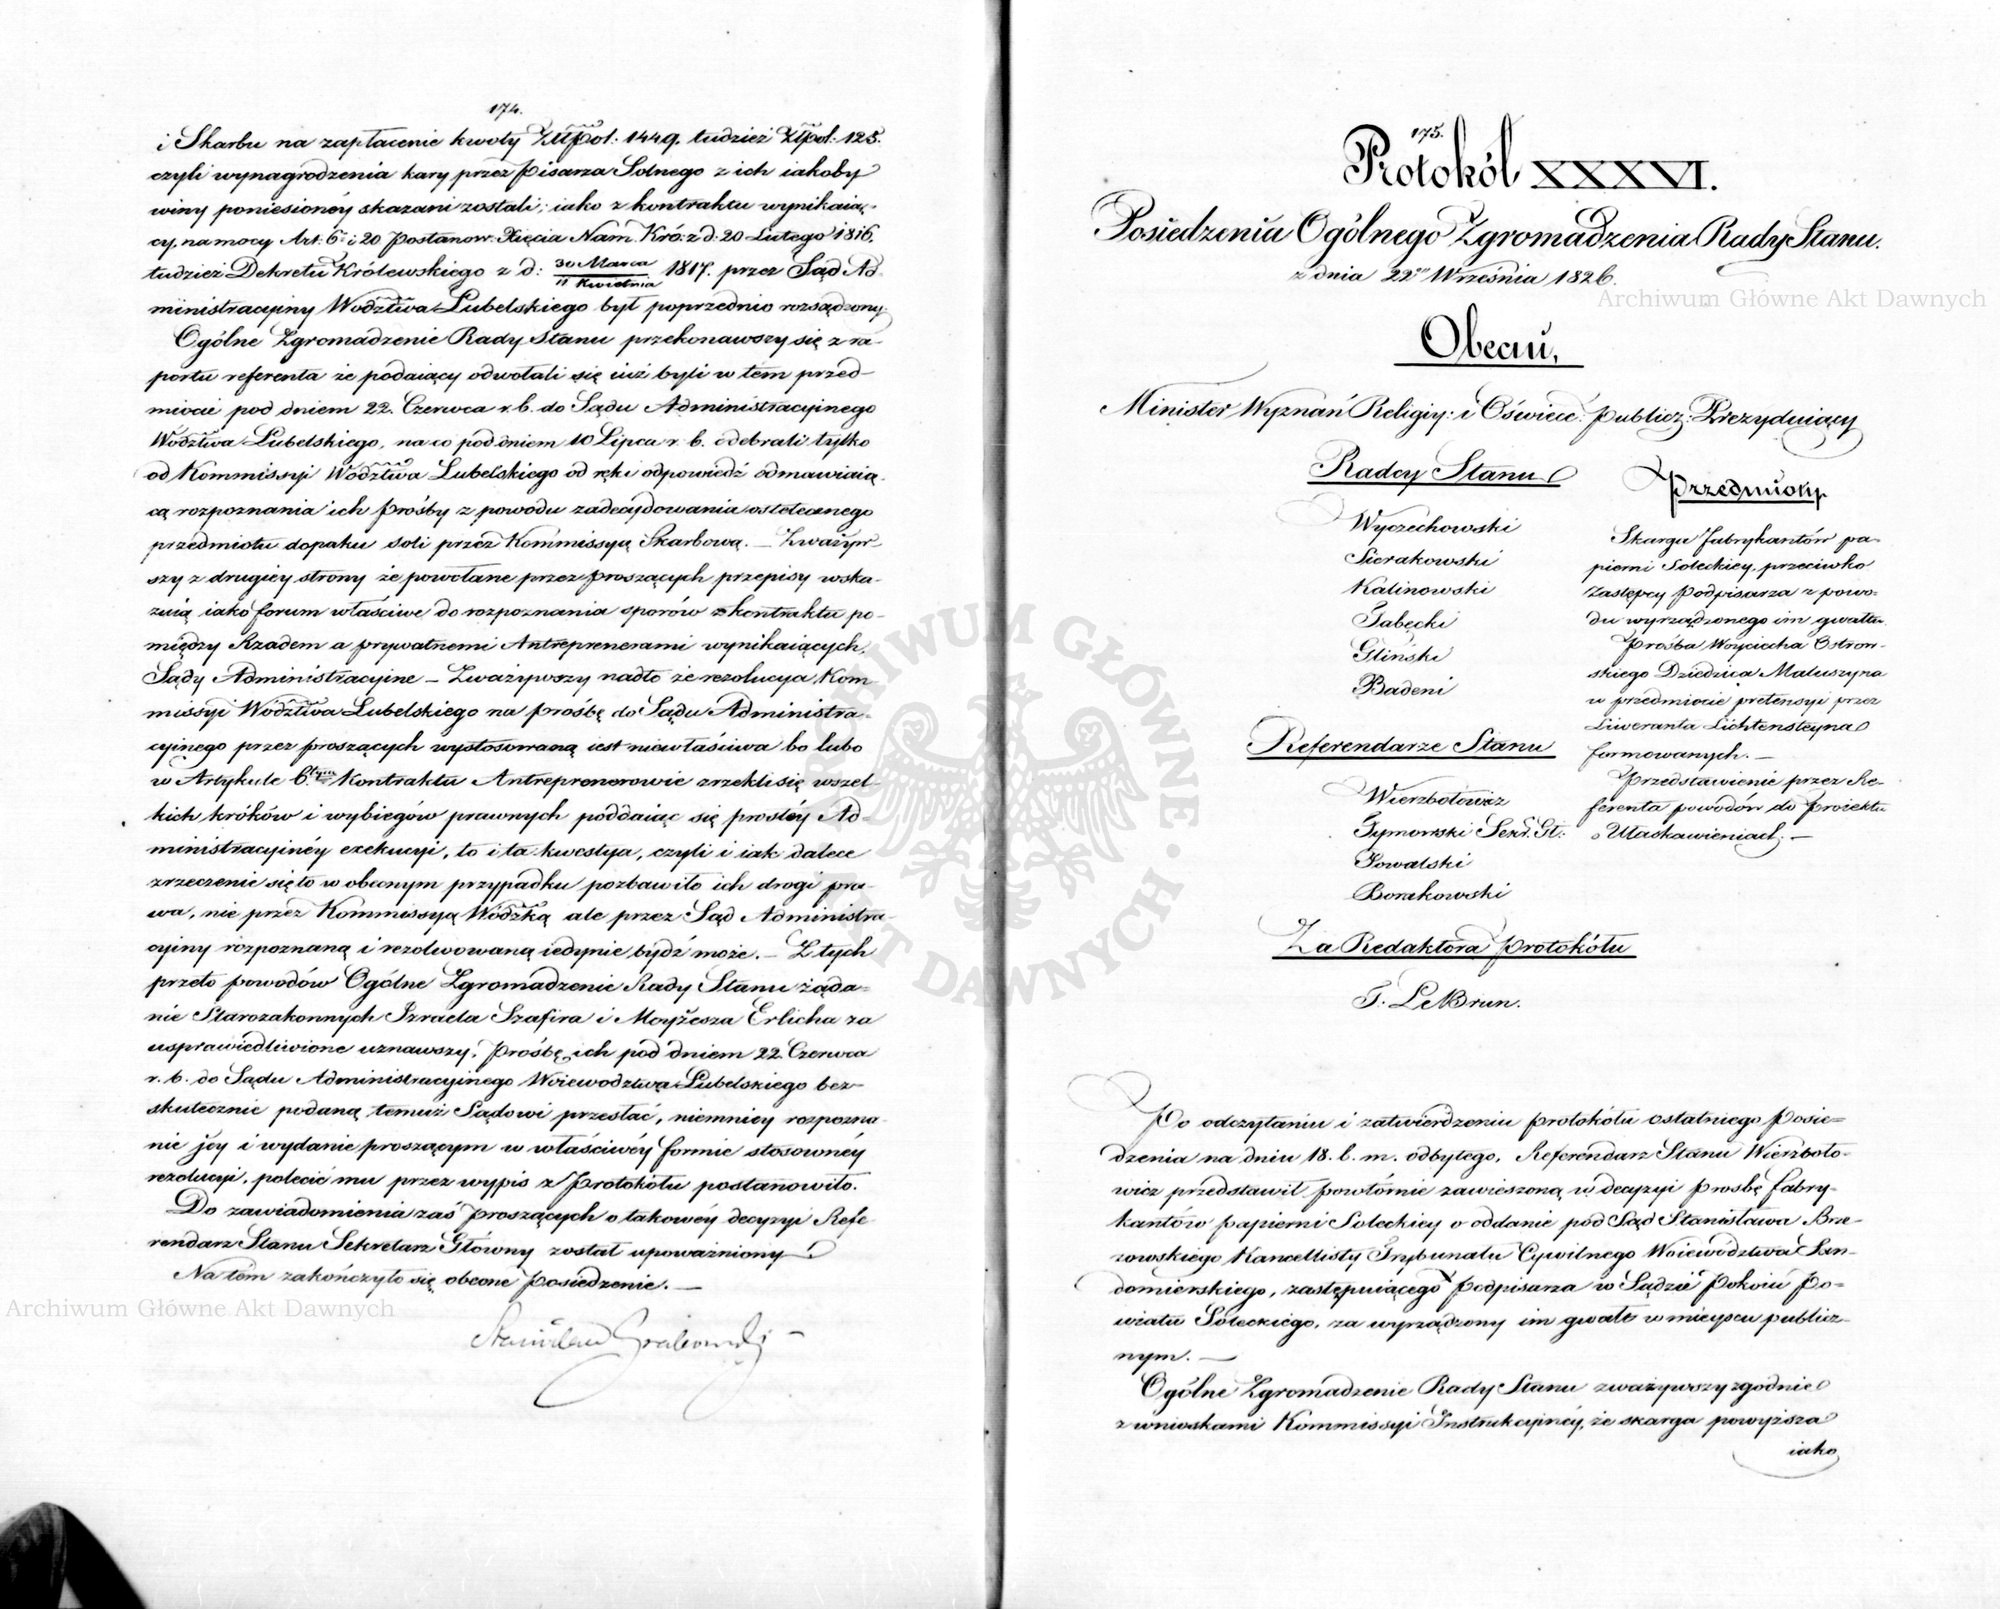 174.
i Skarbu na zapłacenie kwoty Złłpol: 1449. tudzież Złłpol: 125.
czyli wynagrodzenia kary przez Pisarza Solnego z ich iakoby
winy poniesionéy skazani zostali; iako z kontraktu wynikaią-
cy, na mocy Art: 6 i 20 Postanow: Xięcia Nam. Kró: z d: 20 Lutego 1816,
tudzież Dekretu Królewskiego z d: 30 Marca / 11 Kwietnia 1817. przez Sąd Ad-
ministracyiny Wodztwa Lubelskiego był poprzednio rozsądzony.
Ogólne Zgromadzenie Rady Stanu przekonawszy się z ra-
portu referenta że podaiący odwołali się iuż byli w tem przed-
miocie pod dniem 22. Czerwca r. b. do Sądu Administracyinego
Wodztwa Lubelskiego, na co pod dniem 10 Lipca r. b. odebrali tylko
od Kommissyi Wodztwa Lubelskiego od ręki odpowiedź odmawiaią-
cą rozpoznania ich prośby z powodu zadecydowania ostatecznego
przedmiotu dopaku soli przez Kommissyą Skarbową. — Zważyw-
szy z drugiey strony że powołane przez proszących przepisy wska-
zuią iako forum właściwe do rozpoznania sporów z kontraktu po-
między Rządem a prywatnemi Antreprenerami wynikaiących,
Sądy Administracyine — Zważywszy nadto że rezolucya Kom-
missyi Wodztwa Lubelskiego na prośbę do Sądu Administra-
cyinego przez proszących wystosowaną iest niewłaściwa bo lubo
w Artykule 6tym Kontraktu Antreprenerowie zrzekli się wszel-
kich kroków i wybiegów prawnych poddaiąc się prostéy Ad-
ministracyinéy exekucyi, to i ta kwestya, czyli i iak dalece
zrzeczenie się to w obecnym przypadku pozbawiło ich drogi pra-
wa, nie przez Kommissyą Wodzką ale przez Sąd Administra-
cyiny rozpoznaną i rezolwowaną iedynie bydź może. — Z tych
przeto powodów Ogólne Zgromadzenie Rady Stanu żąda-
nie Starozakonnych Izraela Szafira i Moyżesza Erlicha za
usprawiedliwione uznawszy, prośbę ich pod dniem 22. Czerwca
r. b. do Sądu Administracyinego Woiewodztwa Lubelskiego bez-
skutecznie podaną temuż Sądowi przesłać, niemniey rozpozna-
nie jéy i wydanie proszącym w właściwéy formie stosownéy
rezolucyi, polecić mu przez wypis z Protokółu postanowiło.
Do zawiadomienia zaś proszących o takowéy decyzyi Refe-
rendarz Stanu Sekretarz Główny został upoważniony
Na tém zakończyło się obecne Posiedzenie. —
Stanisław Grabowski
175.
Protokół XXXVI.
Posiedzenia Ogólnego Zgromadzenia Rady Stanu.
z dnia 22go Września 1826.
Obecni,
Minister Wyznań Religiy: i Oświece: Publicz: Prezyduiący
Radcy Stanu
Wyczechowski
Sierakowski
Kalinowski
Tabęcki
Gliński
Badeni
Referendarze Stanu
Wierzbołowicz
Tymowski Sekr. Gł:
Kowalski
Borakowski
Przedmioty
Skarga Fabrykantów pa-
pierni Soleckiey, przeciwko
Zastępcy Podpisarza z powo-
du wyrządzonego im gwałtu.
Prośba Woyciecha Ostrow-
skiego Dziedzica Maluszyna
w przedmiocie pretensyi przez
Liweranta Lichtensteyna
formowanych. —
Przedstawienie przez Re-
ferenta powodów do proiektu
o Ułaskawieniach. —
Za Redaktora Protokółu
T. LeBrun.
Po odczytaniu i zatwierdzeniu protokółu ostatniego Posie-
dzenia na dniu 18. b. m. odbytego, Referendarz Stanu Wierzboło-
wicz przedstawił powtórnie zawieszoną w decyzyi prosbę fabry-
kantów papierni Soleckiey o oddanie pod Sąd Stanisława Brze-
zowskiego Kancellisty Trybunału Cywilnego Woiewództwa San-
domierskiego, zastępuiącego Podpisarza w Sądzie Pokoiu Po-
wiatu Soleckiégo, za wyrządzony im gwałt w mieyscu publicz-
nym. —
Ogólne Zgromadzenie Rady Stanu zważywszy zgodnie
z wnioskami Kommissyi Instrukcyinéy, że skarga powyższa
iako
Archiwum Główne Akt Dawnych
Archiwum Główne Akt Dawnych
ARCHIWUM GŁÓWNE · AKT DAWNYCH ·